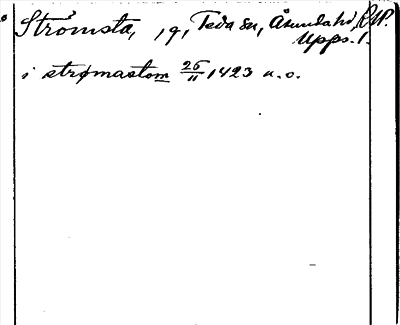 Strömsta, , g, Teda sn, Åsunda hd,
Upps. l.
i strømastom 25/11 1423 u. o.